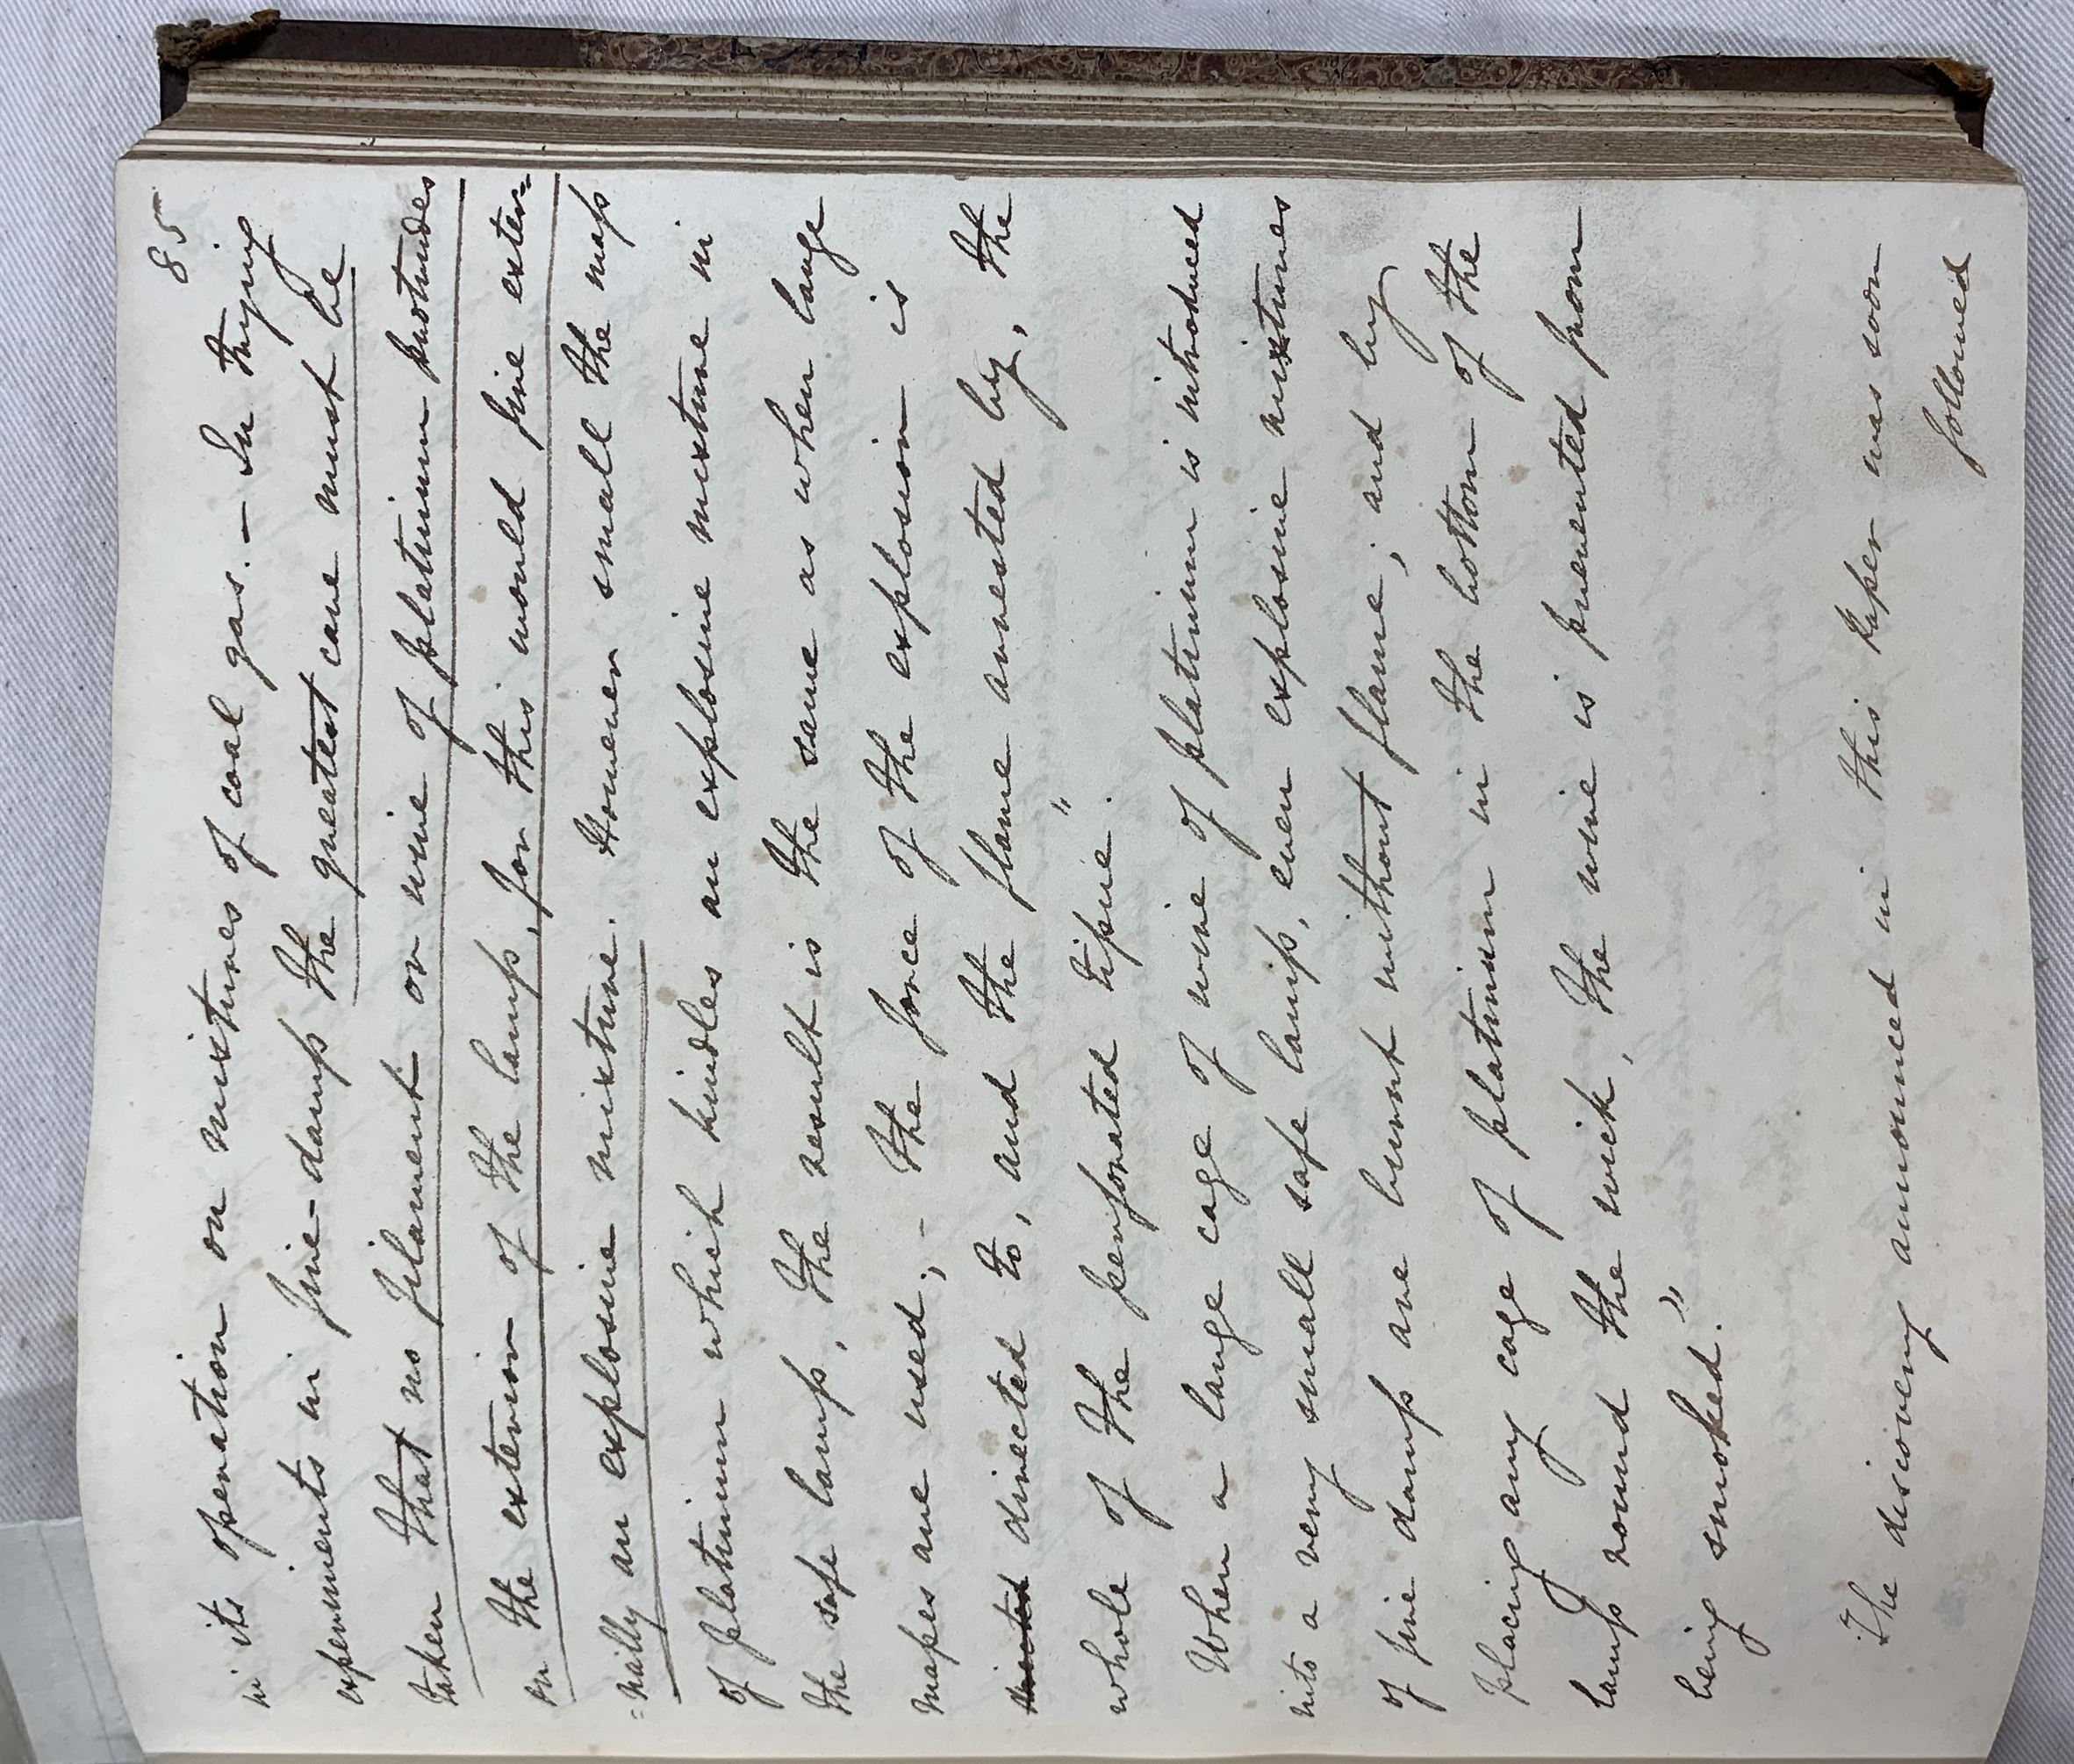 85
in its operation on mixtures of coal gas. – In trying
experiments in fire-damp the greatest care must be
taken that no filament or wire of platinum protrudes
on the exterior of the lamp, for this would fire exter=
=nally an explosive mixture. However small the mass
of platinum which kindles an explosive mixture in
the safe lamp, the result is the same as when large
masses are used; – the force of the explosion is
directed to, and the flame arrested by, the
whole of the perforated tissue."
When a large cage of wire of platinum is introduced
into a very small safe lamp, even explosive mixtures
of fire damp are burnt without flame; and by
placing any cage of platinum in the bottom of the
lamp round the wick, the wire is prevented from
being smoked."
The discovery announced in this paper was soon
followed